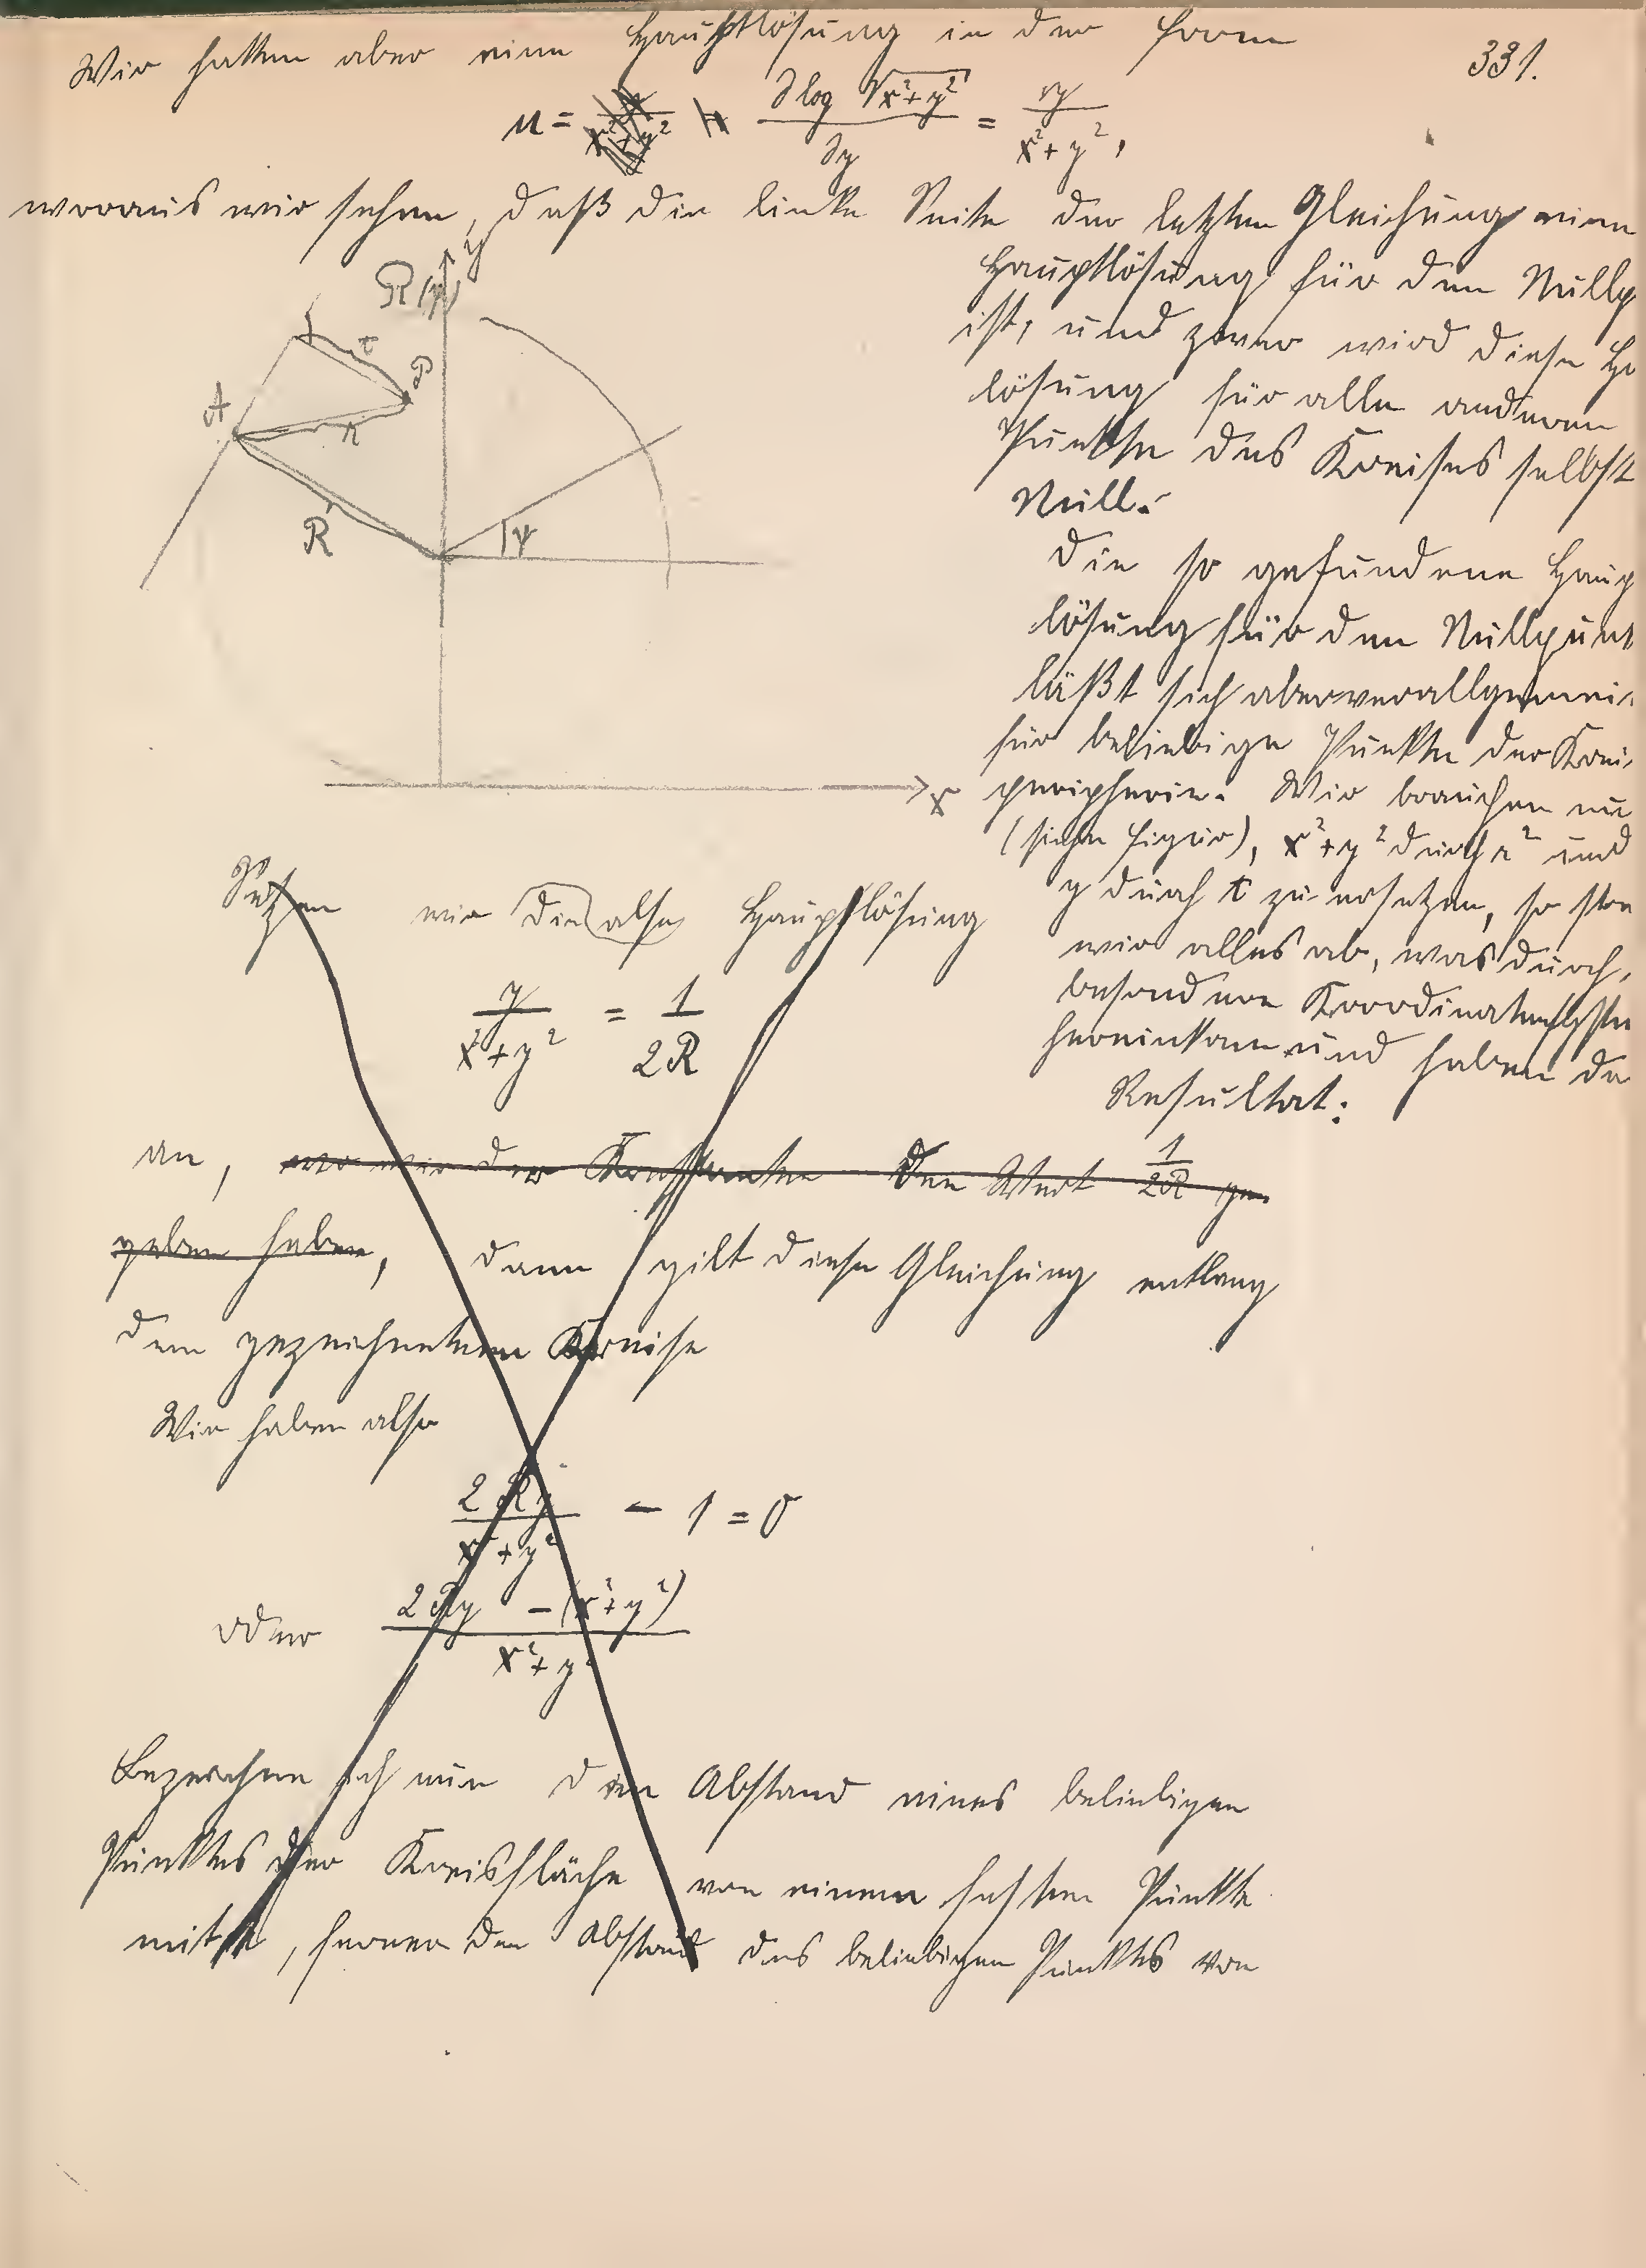 331.
Wir hatten aber eine Hauptlösung in der Form
u = ∂ log √(x²+y²) / ∂y = y / (x²+y²),
woraus wir sehen, daß die linke Seite der letzten Gleichung eine
Hauptlösung für den Nullp
ist, und zwar wird diese Ha
lösung für alle anderen
Punkte des Kreises selbst
Null.
Die so gefundene Haup
lösung für den Nullpunk
läßt sich aber verallgemei
für beliebige Punkte der Krei
peripherie. Wir brauchen nu
(siehe Figur), x²+y² durch r² und
y durch t zu ersetzen, so strei
wir alles ab, was durch
besondere Koordinatensyste
hereinkam und haben da
Resultat:
y
R
t
P
A
r
R
ψ
x
Setzen wir die also Hauptlösung
y / (x²+y²) = 1 / 2R
an, wo wir der Konstanten den Wert 1/2R ge-
geben haben, dann gilt diese Gleichung entlang
dem gezeichneten Kreise
Wir haben also
2Ry / (x²+y²) − 1 = 0
oder (2Ry − (x²+y²)) / (x²+y²)
Bezeichne ich nun den Abstand eines beliebigen
Punktes der Kreisfläche von einem festen Punkte
mit r, ferner den Abstand des beliebigen Punktes von